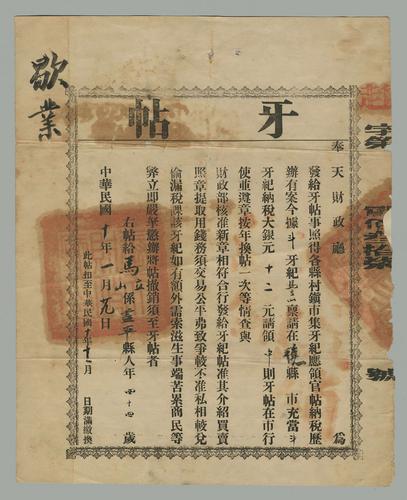 歇業
牙帖
奉天財政廳 為
發給牙帖事照得各縣村鎮市集牙紀應領官帖納稅歷
辦有案今據斗牙紀馬 山稟請在 縣 市充當斗
牙紀納稅大銀元十二元請領中則牙帖在市行
使重遵章按年換帖一次等情查與
財政部核准新章相符合行發給牙紀帖准其介紹買賣
照章提取用錢務須交易公平弗致爭較不准私相較兌
偷漏稅課該牙紀如有額外需索滋生事端苦累商民等
弊立即嚴拏懲辦將帖撤銷須至牙帖者
右帖給馬 山係 平縣人年四十四歲
中華民國十年一月 日
此帖扣至中華民國十年十二月 日期滿繳換
字第
號